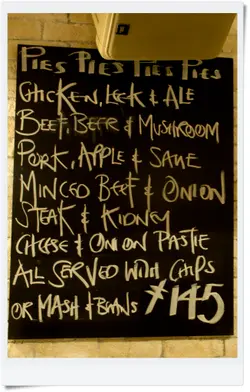 PIES PIES PIES PIES
CHICKEN, LEEK & ALE
BEEF, BEER & MUSHROOM
PORK, APPLE & SAGE
MINCED BEEF & ONION
STEAK & KIDNEY
CHEESE & ONION PASTIE
ALL SERVED WITH CHIPS
OR MASH & BEANS 145